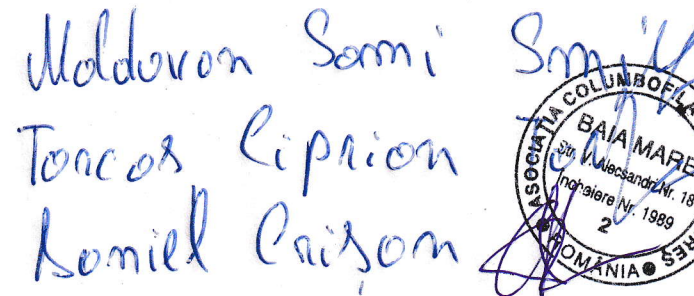 Moldovan Sami
Tarcas Ciprian
Daniel Crișan
ASOCIAȚIA COLUMBOFILA
BAIA MARE
Str. V. Alecsandri Nr. 18
Incheiere Nr. 1989
2
ROMÂNIA